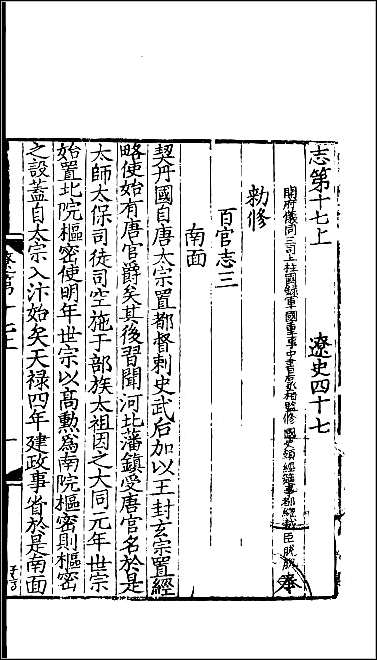 志第十七上 遼史四十七
開府儀同三司上柱國錄軍國重事中書右丞相監修國史領經筵事都總裁臣脫脫奉
勑修
百官志三
南面
契丹國自唐太宗置都督刺史武后加以王封玄宗置經
略使始有唐官爵矣其後習聞河北藩鎮受唐官名於是
太師太保司徒司空施于部族太祖因之大同元年世宗
始置北院樞密使明年世宗以高勲爲南院樞密則樞密
之設蓋自太宗入汴始矣天禄四年建政事省於是南面